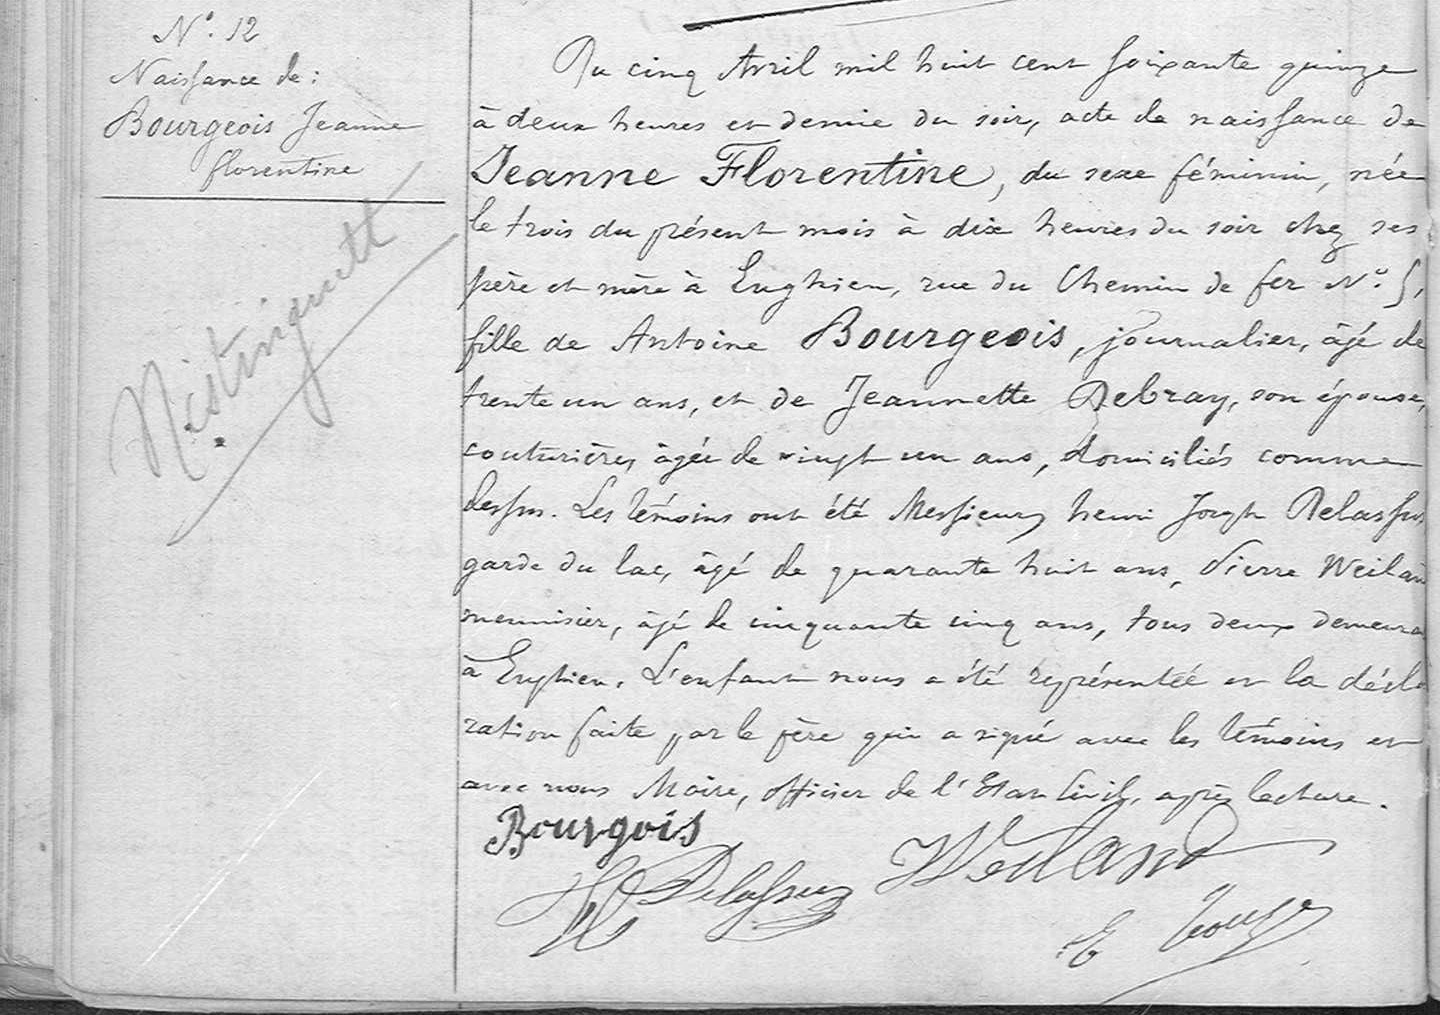 N° 12
Naissance de :
Bourgeois Jeanne
florentine
Mistinguett
Du cinq Avril mil huit cent soixante quinze
à deux heures et demie du soir, acte de naissance de
Jeanne Florentine, du sexe féminin, née
le trois du présent mois à dix heures du soir chez ses
père et mère à Enghien, rue du Chemin de fer N° 5,
fille de Antoine Bourgeois, journalier, âgé de
trente un ans, et de Jeannette Debray, son épouse,
couturière, âgée de vingt un ans, domiciliés comme
dessus. Les témoins ont été Messieurs henri Joseph Delassus
garde du lac, âgé de quarante huit ans, Pierre Weiland
menuisier, âgé de cinquante cinq ans, tous deux demeura
à Enghien. L'enfant nous a été représentée et la décla
ration faite par le père qui a signé avec les témoins et
avec nous Maire, officier de l'Etat Civil, après lecture.
Bourgois
Weiland
H Delassus